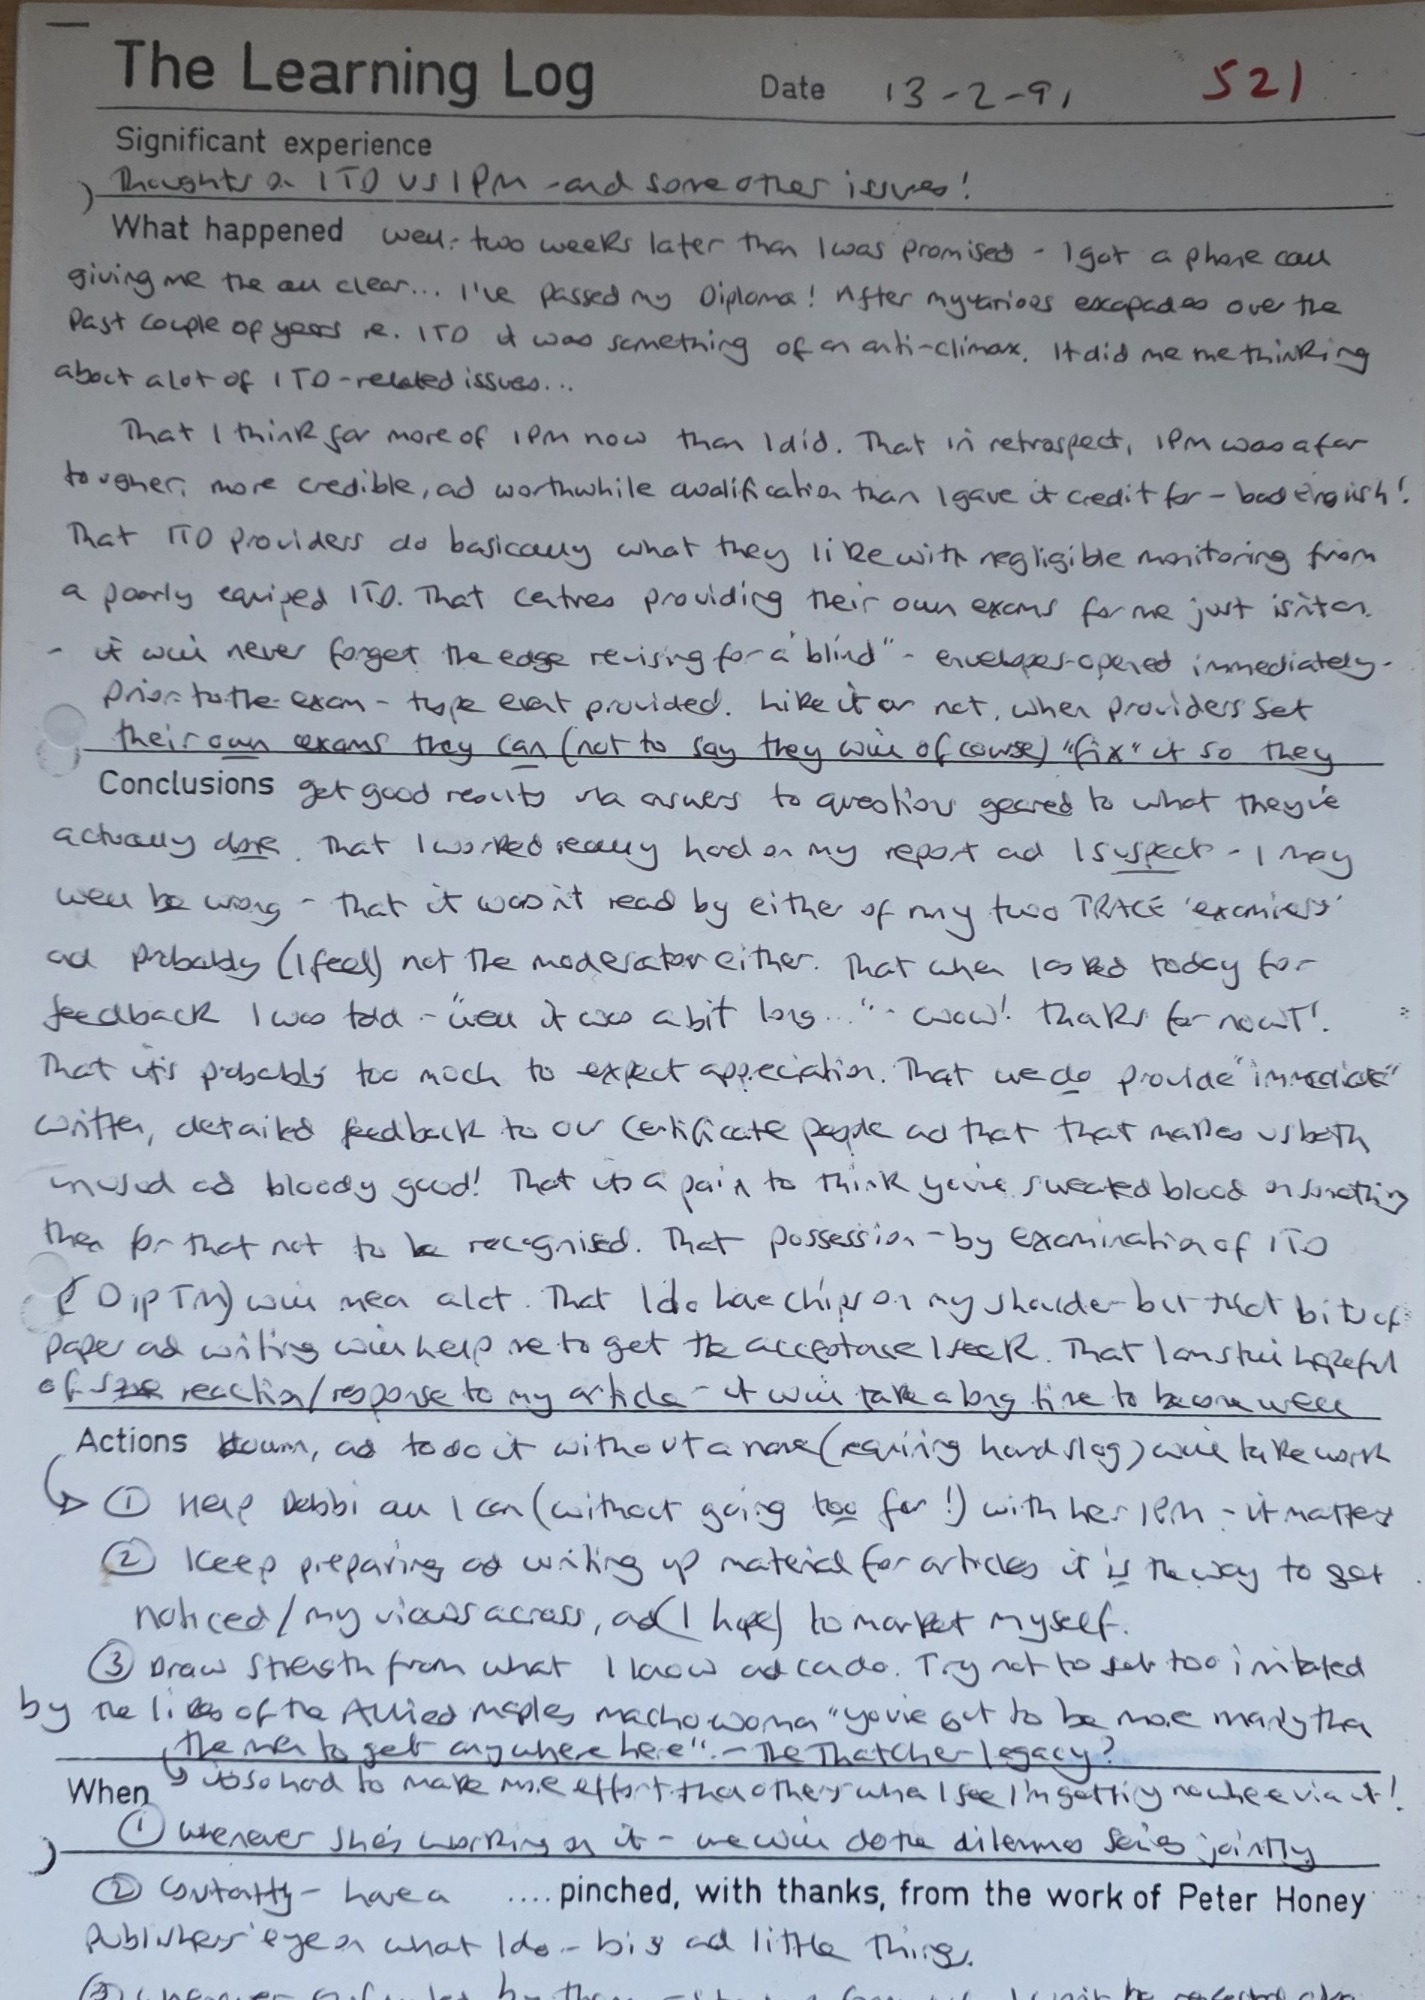 The Learning Log Date 13-2-91 521
Significant experience
Thoughts on ITD vs IPM - and some other issues!
What happened Well - two weeks later than I was promised - I got a phone call
giving me the all clear... I've passed my Diploma! After my various escapades over the
Past couple of years re. ITD it was something of an anti-climax. It did me me thinking
about a lot of ITD-related issues...
That I think far more of IPM now than I did. That in retrospect, IPM was a far
tougher, more credible, and worthwhile qualification than I gave it credit for - bad English!
That ITD providers do basically what they like with negligible monitoring from
a poorly equiped ITD. That centres providing their own exams for me just isn't on.
- it will never forget the edge revising for a "blind" - envelopes-opened immediately-
prior-to-the-exam - type event provided. Like it or not, when providers set
their own exams they can (not to say they will of course) "fix" it so they
Conclusions get good results via answers to questions geared to what they've
actually done. That I worked really hard on my report and I suspect - I may
well be wrong - that it wasn't read by either of my two TRACE 'examiners'
and probably (I feel) not the moderator either. That when I asked today for
feedback I was told - "well it was a bit long..." - wow! thanks for nowt!
That it's probably too much to expect appreciation. That we do provide "immediate"
written, detailed feedback to our Certificate people and that that makes us both
unusual and bloody good! That it's a pain to think you've sweated blood on something
then for that not to be recognised. That possession - by examination of ITD
(DipTM) will mean a lot. That I do have chips on my shoulder but that bits of
paper and writing will help me to get the acceptance I seek. That I am still hopeful
of some reaction/response to my article - it will take a long time to become well
Actions known, and to do it without a name (requiring hard slog) will take work
① Help Debbi all I can (without going too far!) with her IPM - it matters
② Keep preparing and writing up material for articles it is the way to get
noticed/my views across, and (I hope) to market myself.
③ Draw strength from what I know and can do. Try not to get too irritated
by the likes of the Allied Maples macho woman "you've got to be more manly than
the men to get anywhere here". - The Thatcher legacy?
When it's so hard to make more effort than others when I see I'm getting nowhere via it!
① Whenever she's working on it - we will do the dilemmas series jointly
② Constantly - have a .... pinched, with thanks, from the work of Peter Honey
publishers' eye on what I do - big and little things.
③ whenever by them